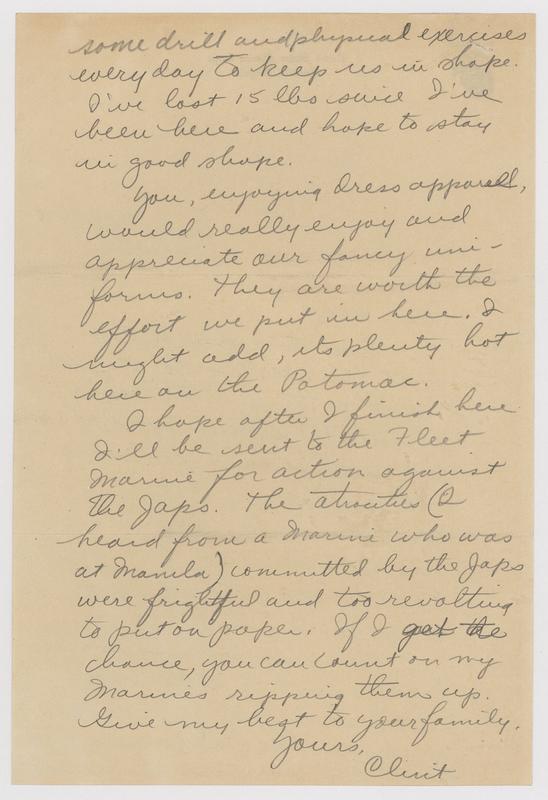 some drill and physical exercises
every day to keep us in shape.
I've lost 15 lbs since I've
been here and hope to stay
in good shape.
You, enjoying dress apparell,
would really enjoy and
appreciate our fancy uni-
forms. They are worth the
effort we put in here. I
might add, its plenty hot
here on the Potomac.
I hope after I finish here
I'll be sent to the Fleet
Marine for action against
the Japs. The atrocities (I
heard from a Marine who was
at Manila) committed by the Japs
were frightful and too revolting
to put on paper. If I get the
chance, you can count on my
Marines ripping them up.
Give my best to your family.
Yours,
Clint